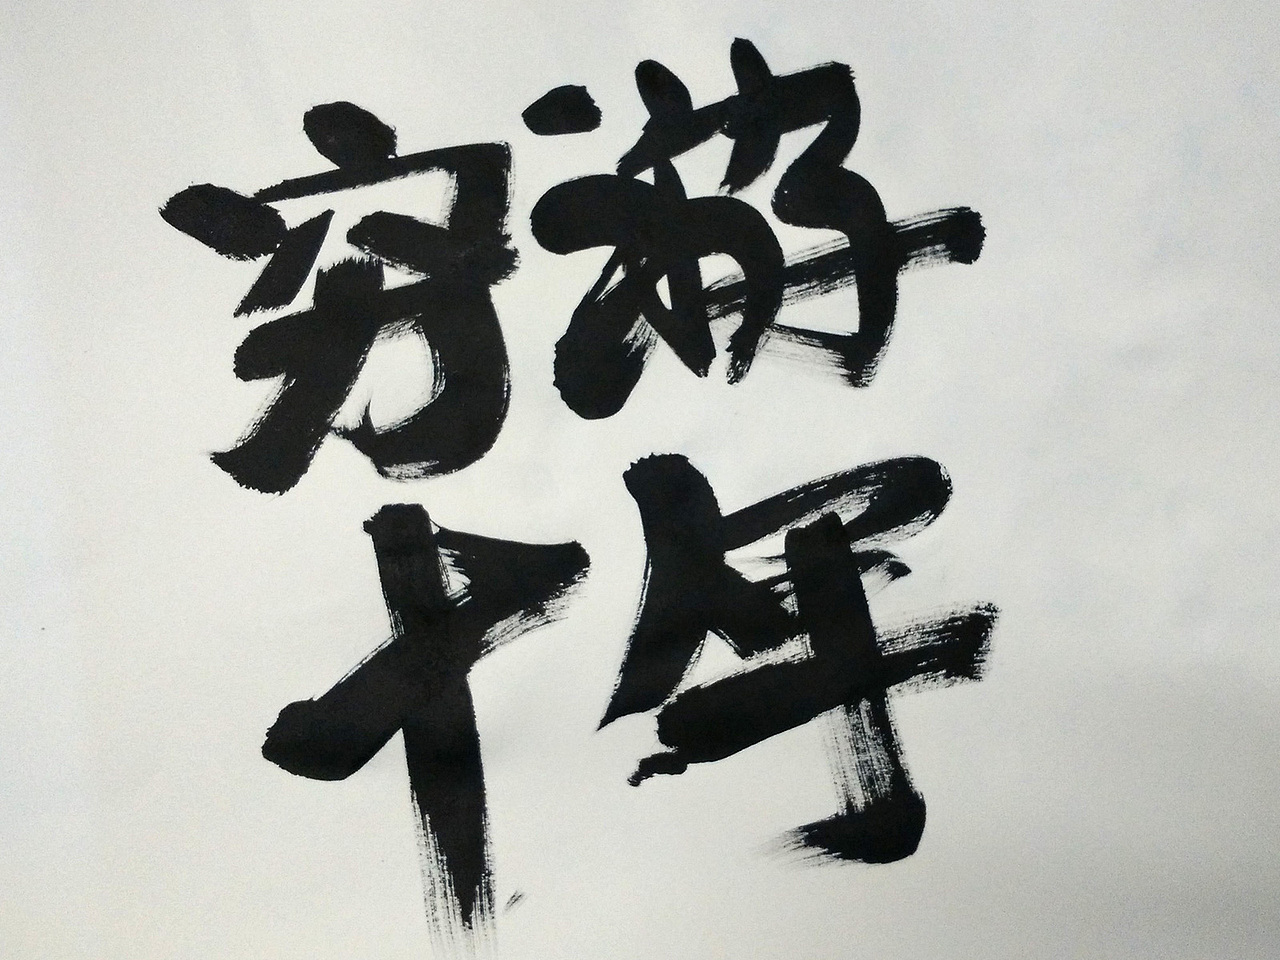 穷游
十年